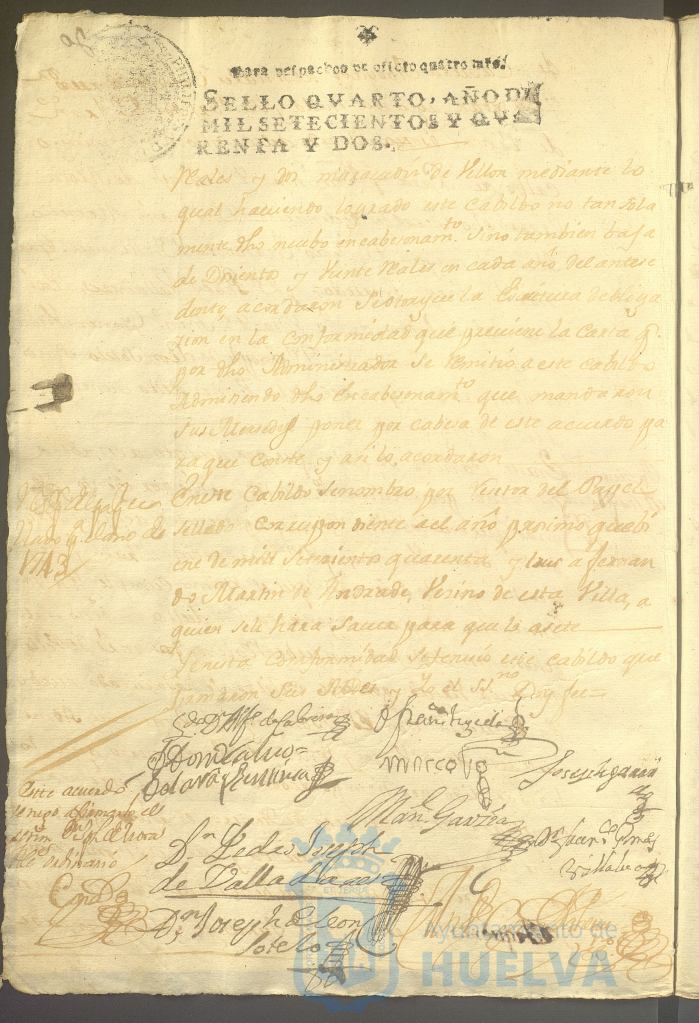 Para despachos de oficio quatro mrs.
SELLO QVARTO, AÑO DE
MIL SETECIENTOS Y QVA
RENTA Y DOS.
Reales y dos maravedis de Vellon mediante lo
qual haviendo logrado este Cabildo no tan sola
mente dho nuebo encabesonam.to sino tambien baja
de Dosientos y Veinte Reales en cada año del antese
dente, acordaron se otorgue la Escritura de obliga
zion en la Conformidad que previene la Carta q.
por dho Administrador se remitio a este Cabildo
Admitiendo dho Encabesonam.to que mandaron
sus Mercedes poner por cabesa de este acuerdo pa
ra que Conste y asi lo acordaron
En este Cabildo se nombro por Rector del Papel
sellado Correspondiente a el año procimo que bi
ene de mill Setesientos quarenta y tres a fernan
do Martin de Andrade, Vezino de esta Villa, a
quien se le hara saver para que lo asete
Y en esta Conformidad se fenecio este cabildo que
firmaron sus Mrdes y Yo el ss.no Doy fee
1743
Marcos
Joseph garcia
Man.l Garzia
Este acuerdo
D.n Pedro Joseph
de Valladares
D.n Joseph de Leon
Sotelo
Ayuntamiento de
HUELVA